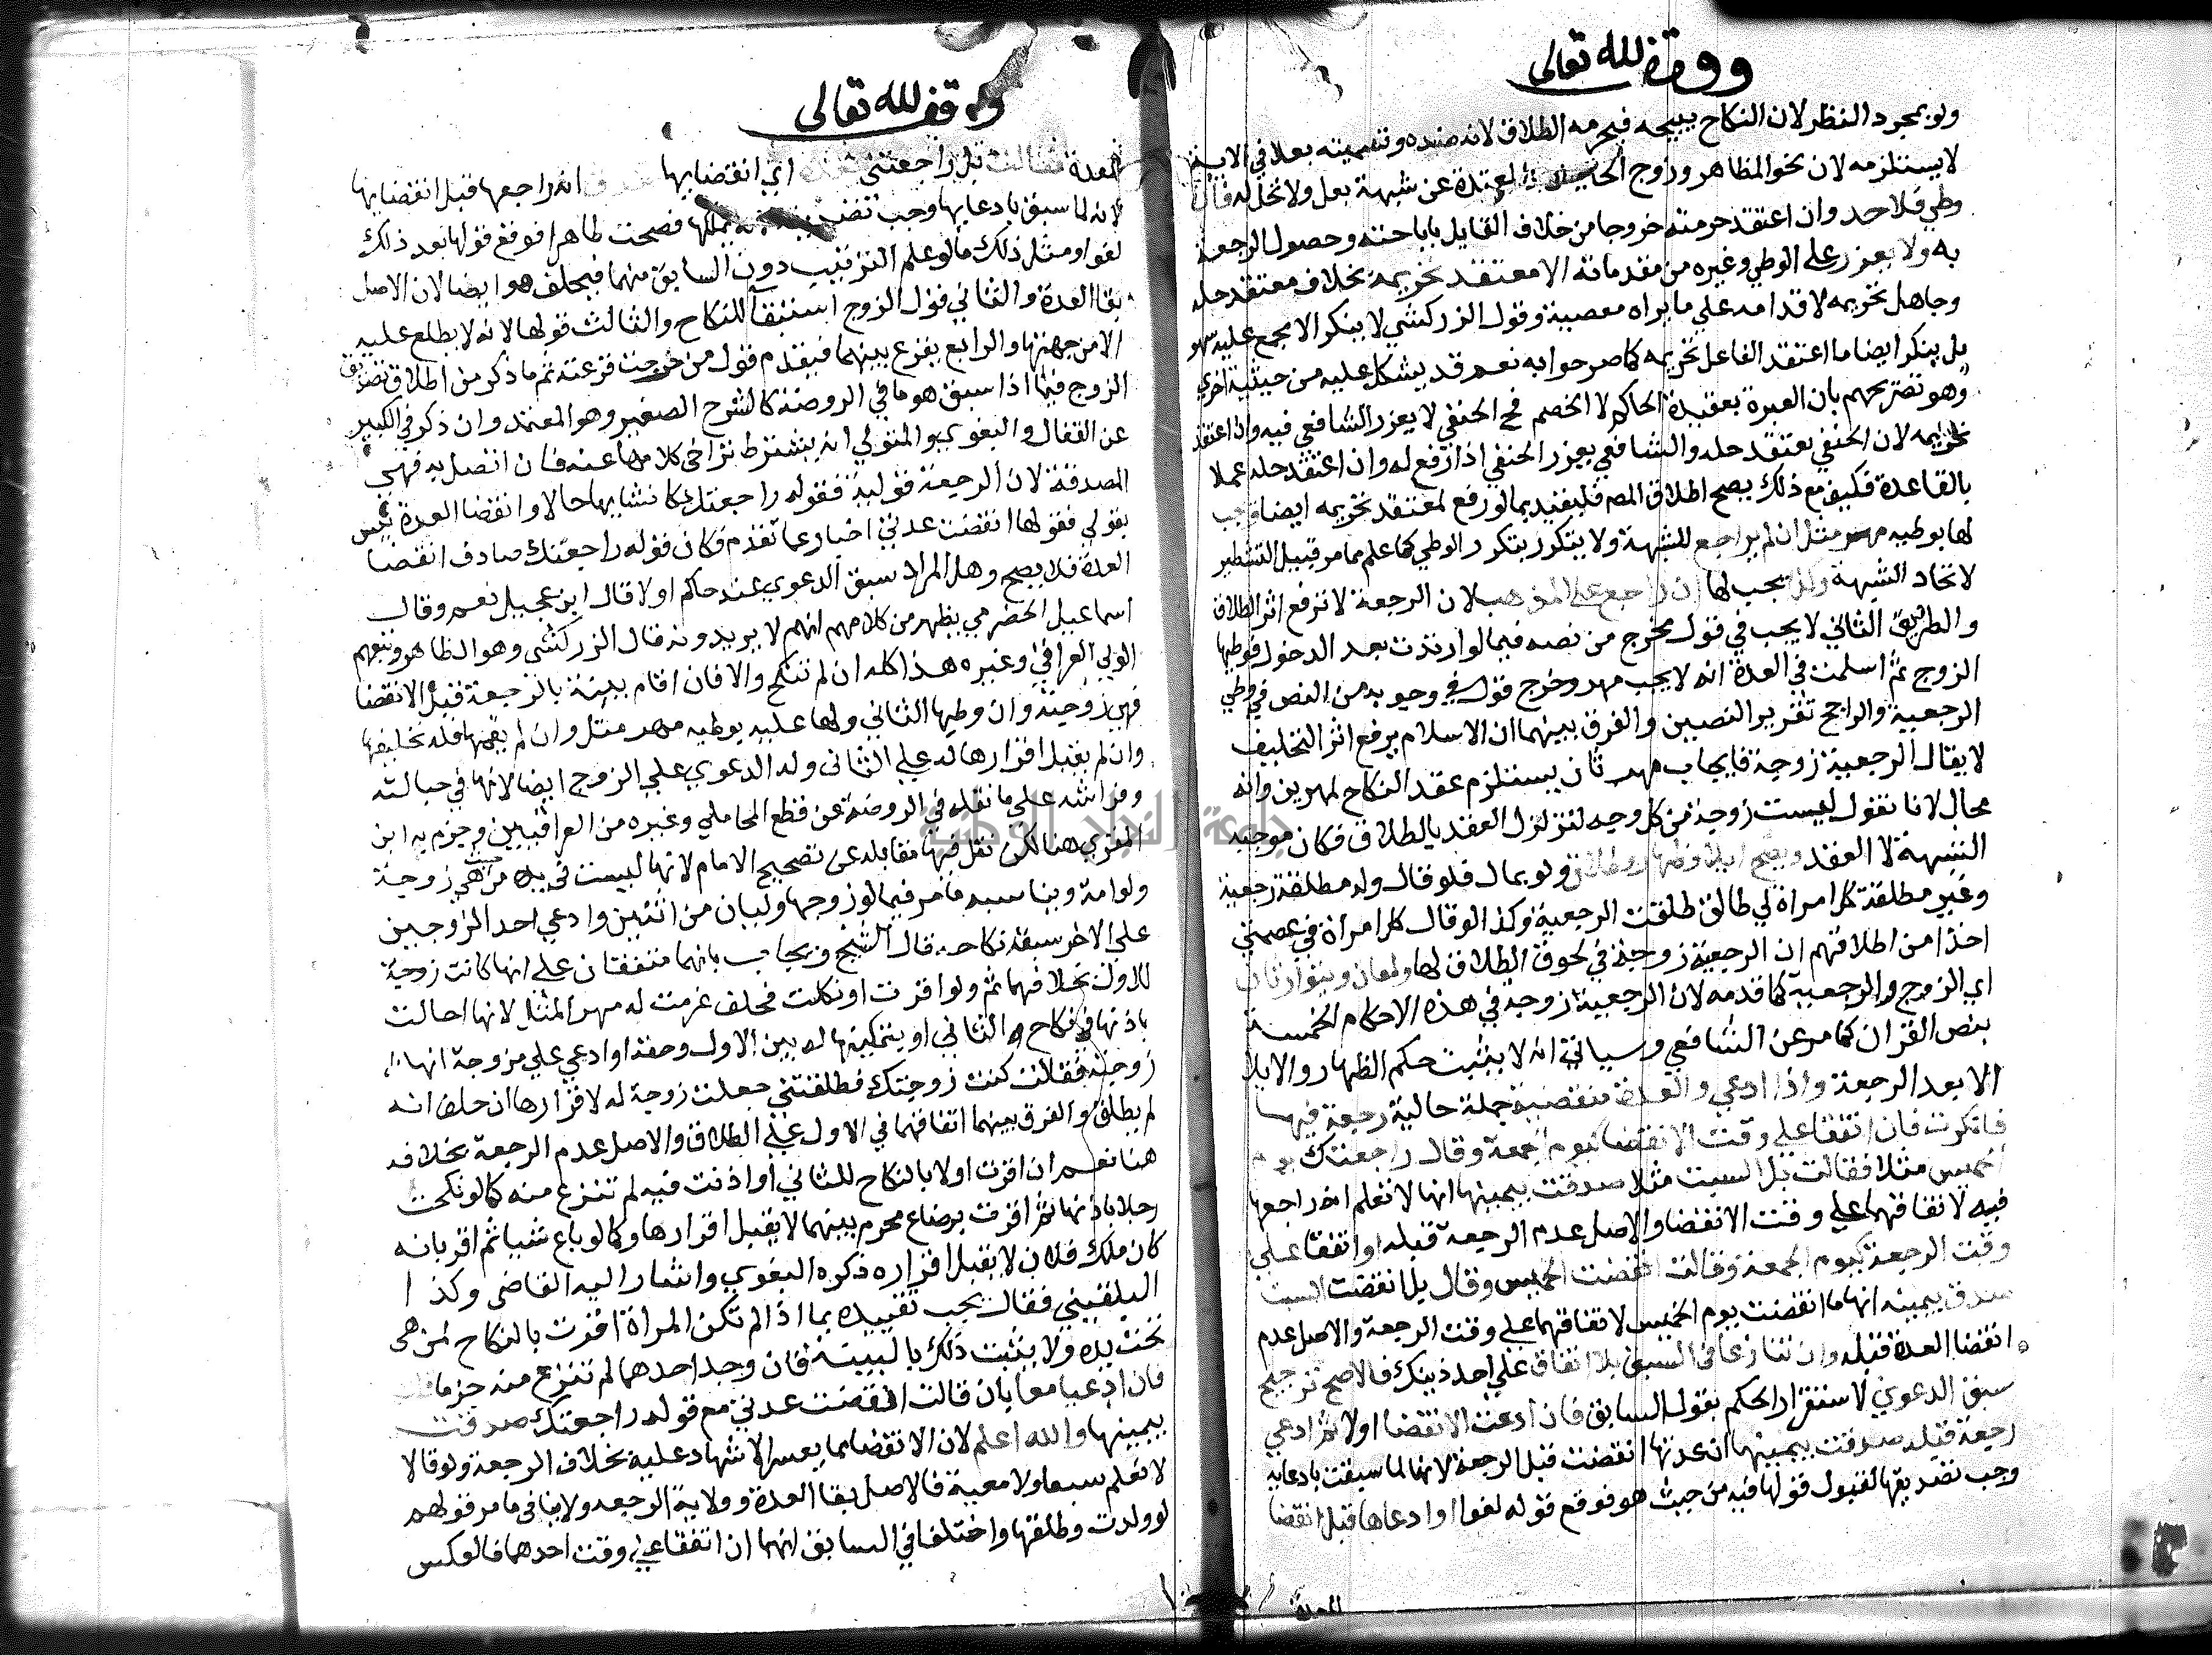 ووقف لله تعالى
ولو بمجرد النظر لان النكاح يبيحه فيحرمه الطلاق لانه ضده وتسميته بعلا في الاية
لايستلزمه لان نحو المظاهر وزوج الحايض والمعتدة عن شبهة بعل ولا تحل له فان
وطي فلا حد وان اعتقد حرمته خروجا من خلاف القايل باباحته وحصول الرجعة
به ولا يعزر علي الوطي وغيره من مقدماته الا معتقد تحريمه بخلاف معتقد حله
وجاهل تحريمه لاقدامه علي ما يراه معصية وقول الزركشي لا ينكر الا مجمع عليه سهو
بل ينكر ايضا ما اعتقد الفاعل تحريمه كما صرحوا به نعم قد يشكل عليه من حيثية اخري
وهو تصريحهم بان العبرة بعقيدة الحاكم لا الخصم فح الحنفي لا يعزر الشافعي فيه وان اعتقد
تحريمه لان الحنفي يعتقد حله والشافعي يعزر الحنفي اذا رفع له وان اعتقد حله عملا
بالقاعدة فكيف مع ذلك يصح اطلاق المص فليقيد بما لو رفع لمعتقد تحريمه ايضا ويجب
لها بوطيه مهر مثل ان لم يراجع للشبهة ولا يتكرر بتكرر الوطي كما علم مما مر قبيل التشطير
لاتحاد الشبهة وكذا يجب لها ان راجع علي المذهب لان الرجعة لا ترفع اثر الطلاق
والطريق الثاني لا يجب في قول مخرج من نصه فيما لو ارتدت بعد الدخول فوطيها
الزوج ثم اسلمت في العدة انه لا يجب مهر وخرج قول في وجوبه من النص في وطي
الرجعية والراجح تقرير النصين والفرق بينهما ان الاسلام يرفع اثر التخليف
لا يقال الرجعية زوجة فايجاب مهر ثان يستلزم عقد النكاح لمهرين وانه
محال لانا نقول ليست زوجة من كل وجه لتزلزل العقد بالطلاق فكان موجبه
الشبهة لا العقد ويصح ايلاء وظهار وطلاق ولو بمال فلو قال وله مطلقة رجعية
وغير مطلقة كل امراة لي طالق طلقت الرجعية وكذا لو قال كل امراة في عصمتي
اخذا من اطلاقهم ان الرجعية زوجة في لحوق الطلاق لها ولعان ويتوارثان
اي الزوج والرجعية كما قدمه لان الرجعية زوجة في هذه الاحكام الخمسة
بنص القران كما مر عن الشافعي وسياتي انه لا يثبت حكم الظهار والايلا
الا بعد الرجعة واذا ادعي والعدة منقضية جملة حالية رجعة فيها
فانكرت فان اتفقا علي وقت الانقضا كيوم الجمعة وقال راجعتك يوم
الخميس مثلا فقالت بل السبت مثلا صدقت بيمينها انها لا تعلم انه راجعها
فيه لاتفاقهما علي وقت الانقضا والاصل عدم الرجعة قبله او اتفقا علي
وقت الرجعة كيوم الجمعة وقالت انقضت الخميس وقال بل انقضت السبت
صدق بيمينه انها ما انقضت يوم الخميس لاتفاقهما علي وقت الرجعة والاصل عدم
انقضا العدة قبله وان تنازعا في السبق بلا اتفاق علي احد ذينك فالاصح ترجيح
سبق الدعوي لاستقرار الحكم بقول السابق فان ادعت الانقضا اولا ثم ادعي
رجعة قبله صدقت بيمينها ان عدتها انقضت قبل الرجعة لانها لما سبقت بادعايه
وجب تصديقها لقبول قولها فيه من حيث هو فوقع قوله لغوا او ادعاها قبل انقضا
العدة
وقف لله تعالى
العدة فقالت بل راجعتني بعده اي انقضايها صدق انه راجعها قبل انقضايها
لانه لما سبق بادعايها وجب تصديقه لانه يملكها فصحت ظاهرا فوقع قولها بعد ذلك
لغوا ومثل ذلك ما لو علم الترتيب دون السابق منهما فيحلف هو ايضا لان الاصل
بقا العدة والثاني قول الزوج استبقآ للنكاح والثالث قولها لانه لا يطلع عليه
الا من جهتها والرابع يقرع بينهما فيقدم قول من خرجت قرعته ثم ما ذكر من اطلاق تصديق
الزوج فيما اذا سبق هو ما في الروضة كالشرح الصغير وهو المعتمد وان ذكر في الكبير
عن القفال والبغوي والمتولي انه يشترط تراخي كلامها عنه فان اتصل به فهي
المصدقة لان الرجعة قولية فقوله راجعتك كانشايها حالا وانقضا العدة ليس
بقولي فقولها انقضت عدتي اخبار عما تقدم فكان قوله راجعتك صادف انقضا
العدة فلا يصح وهل المراد سبق الدعوي عند حاكم اولا قال ابن عجيل نعم وقال
اسماعيل الحضرمي يظهر من كلامهم انهم لا يريدونه قال الزركشي وهو الظاهر وتبعهم
الولي العراقي وغيره هذا كله ان لم تنكح والا فان اقام بينة بالرجعة قبل الانقضا
فهي زوجته وان وطيها الثاني ولها عليه بوطيه مهر مثل وان لم يقمها فله تحليفها
وان لم يقبل اقرارها له علي الثاني وله الدعوي علي الزوج ايضا لانها في حبالته
وفراشه علي ما نقله في الروضة عن قطع المحاملي وغيره من العراقيين وجزم به ابن
المقري هنا لكن نقل فيها مقابله عن تصحيح الامام لانها ليست في يده من حيث هي زوجة
ولو امة ويناسبه ما مر فيما لو زوجها وليان من اثنين وادعي احد الزوجين
علي الاخر سبق نكاحه قال الشيخ ويجاب بانهما متفقان علي انها كانت زوجة
للاول بخلافهما ثم ولو اقرت او نكلت فحلف غرمت له مهر المثل لانها احالت
باذنها في نكاح الثاني او بتمكينها له بين الاول وحقه او ادعي علي مزوجة انها
زوجته فقالت كنت زوجتك فطلقتني جعلت زوجة له لاقرارها ان حلف انه
لم يطلق والفرق بينهما اتفاقهما في الاول علي الطلاق والاصل عدم الرجعة بخلافه
هنا نعم ان اقرت اولا بالنكاح للثاني او اذنت فيه لم تنزع منه كما لو نكحت
رجلا باذنها ثم اقرت برضاع محرم بينهما لا يقبل اقرارها وكما لو باع شيا ثم اقر بانه
كان ملك فلان لا يقبل اقراره ذكره البغوي واشار اليه القاضي وكذا
البلقيني فقال يجب تقييده بما اذا لم تكن المراة اقرت بالنكاح لمن هي
تحت يده ولا يثبت ذلك بالبينة فان وجد احدهما لم تنزع منه جزما
فان ادعيا معا بان قالت انقضت عدتي مع قوله راجعتك صدقت
بيمينها والله اعلم لان الانقضا مما يعسر الاشهاد عليه بخلاف الرجعة ولو قالا
لا نعلم سبقا ولا معية فالاصل بقا العدة وولاية الرجعه ولا ينافي ما مر قولهم
لو ولدت وطلقها واختلفا في السابق انهما ان اتفقا علي وقت احدهما فالعكس